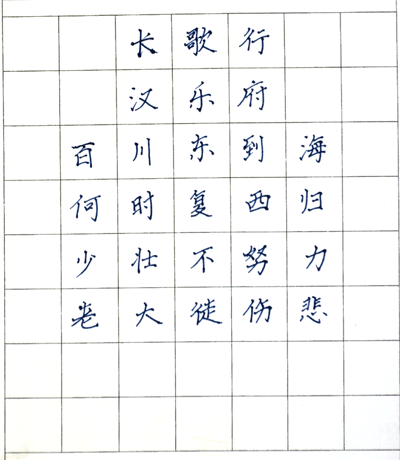 长歌行
汉乐府
百川东到海
何时复西归
少壮不努力
老大徒伤悲